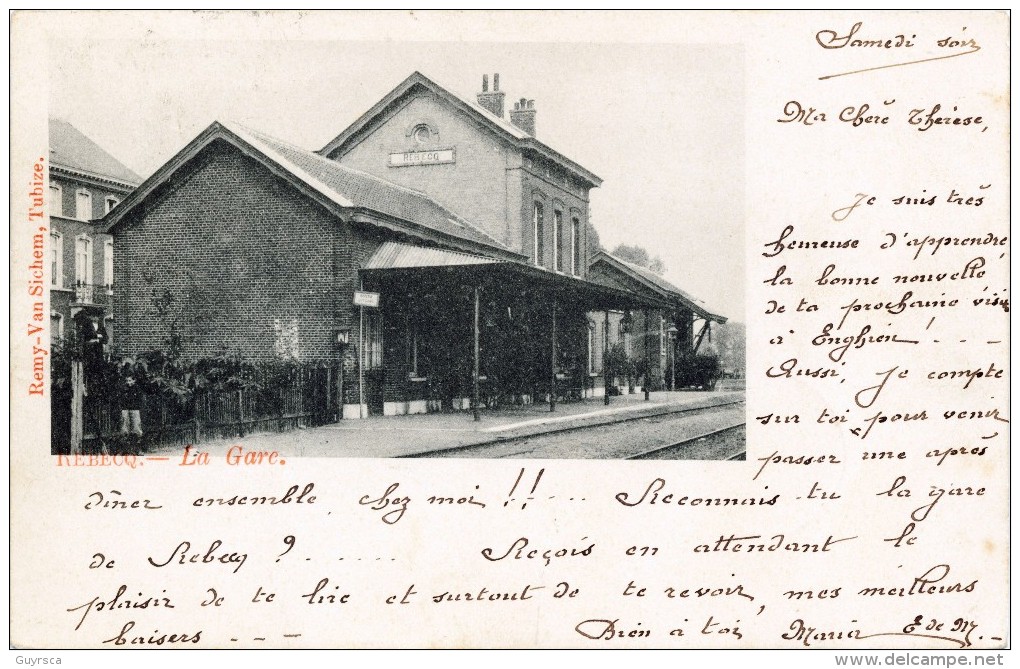 Samedi soir
Ma Chère Thérèse,
Je suis très
heureuse d'apprendre
la bonne nouvelle
de ta prochaine visite
à Enghien! - - -
Aussi, je compte
sur toi pour venir
passer une après
dîner ensemble chez moi!!....
Reconnais-tu la gare
de Rebecq?......
Reçois en attendant le
plaisir de te lire et surtout de te revoir, mes meilleurs
baisers - - -
Bien à toi, Maria E de M.
REBECQ
Remy-Van Sichem, Tubize.
REBECQ. — La Gare.
Guyrsca
delcampe.net